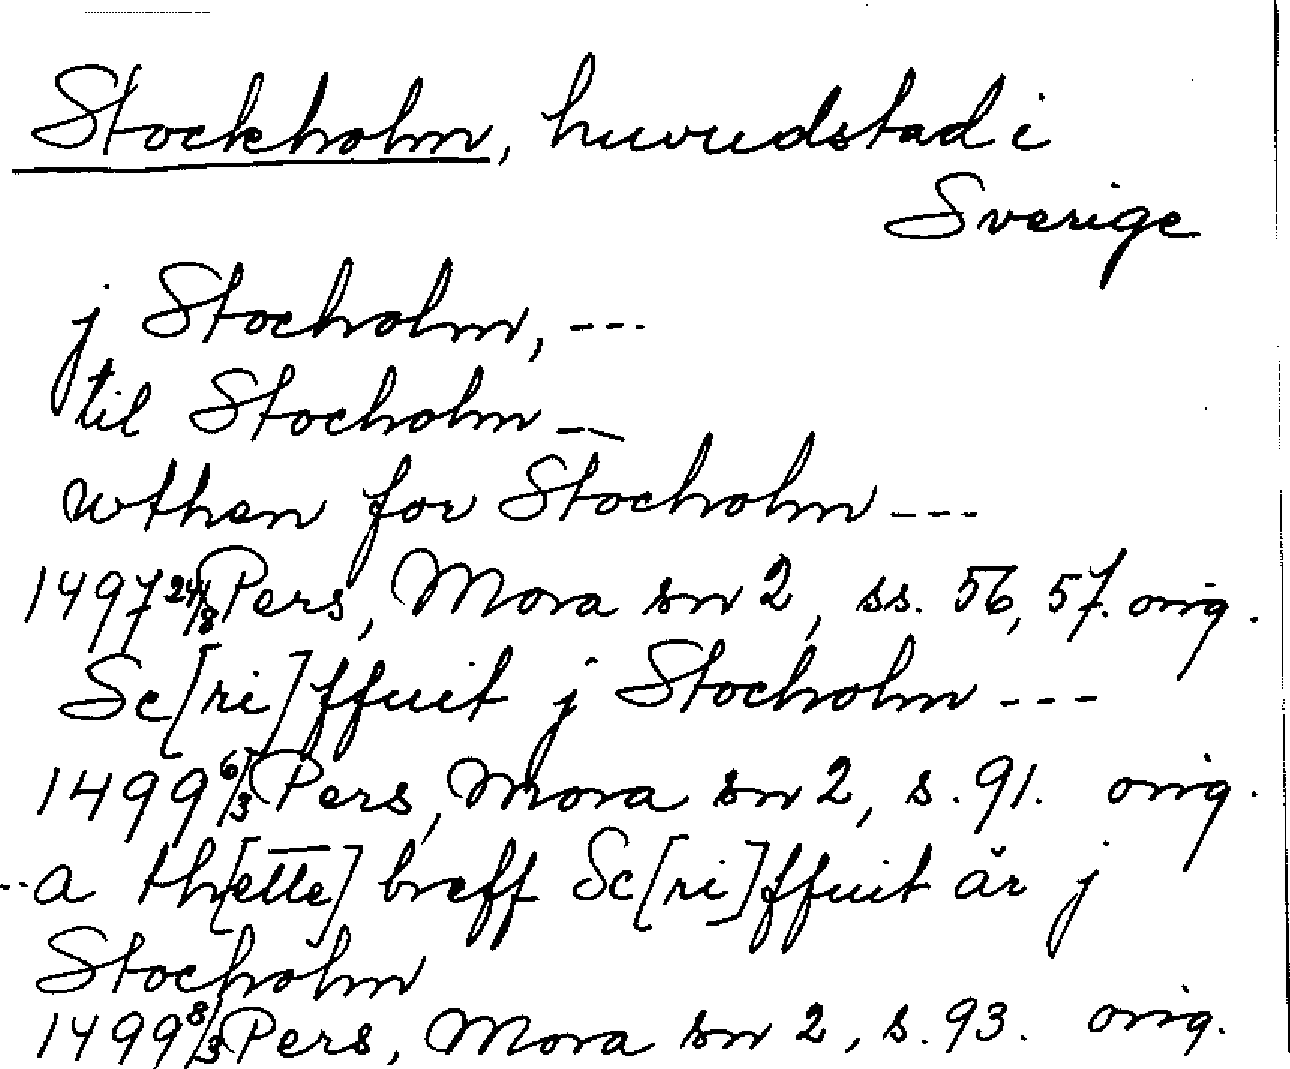 Stockholm, huvudstad i
Sverige
j Stocholm, ---
til Stocholm --
wthen for Stocholm ---
1497 24/8 Pers, Mora sn 2, ss. 56, 57. orig.
Sc[ri]ffuit j Stocholm ---
1499 6/3 Pers, Mora sn 2, s. 91. orig.
--a th[ette] breff Sc[ri]ffuit är j
Stocholm
1499 8/3 Pers, Mora sn 2, s. 93. orig.